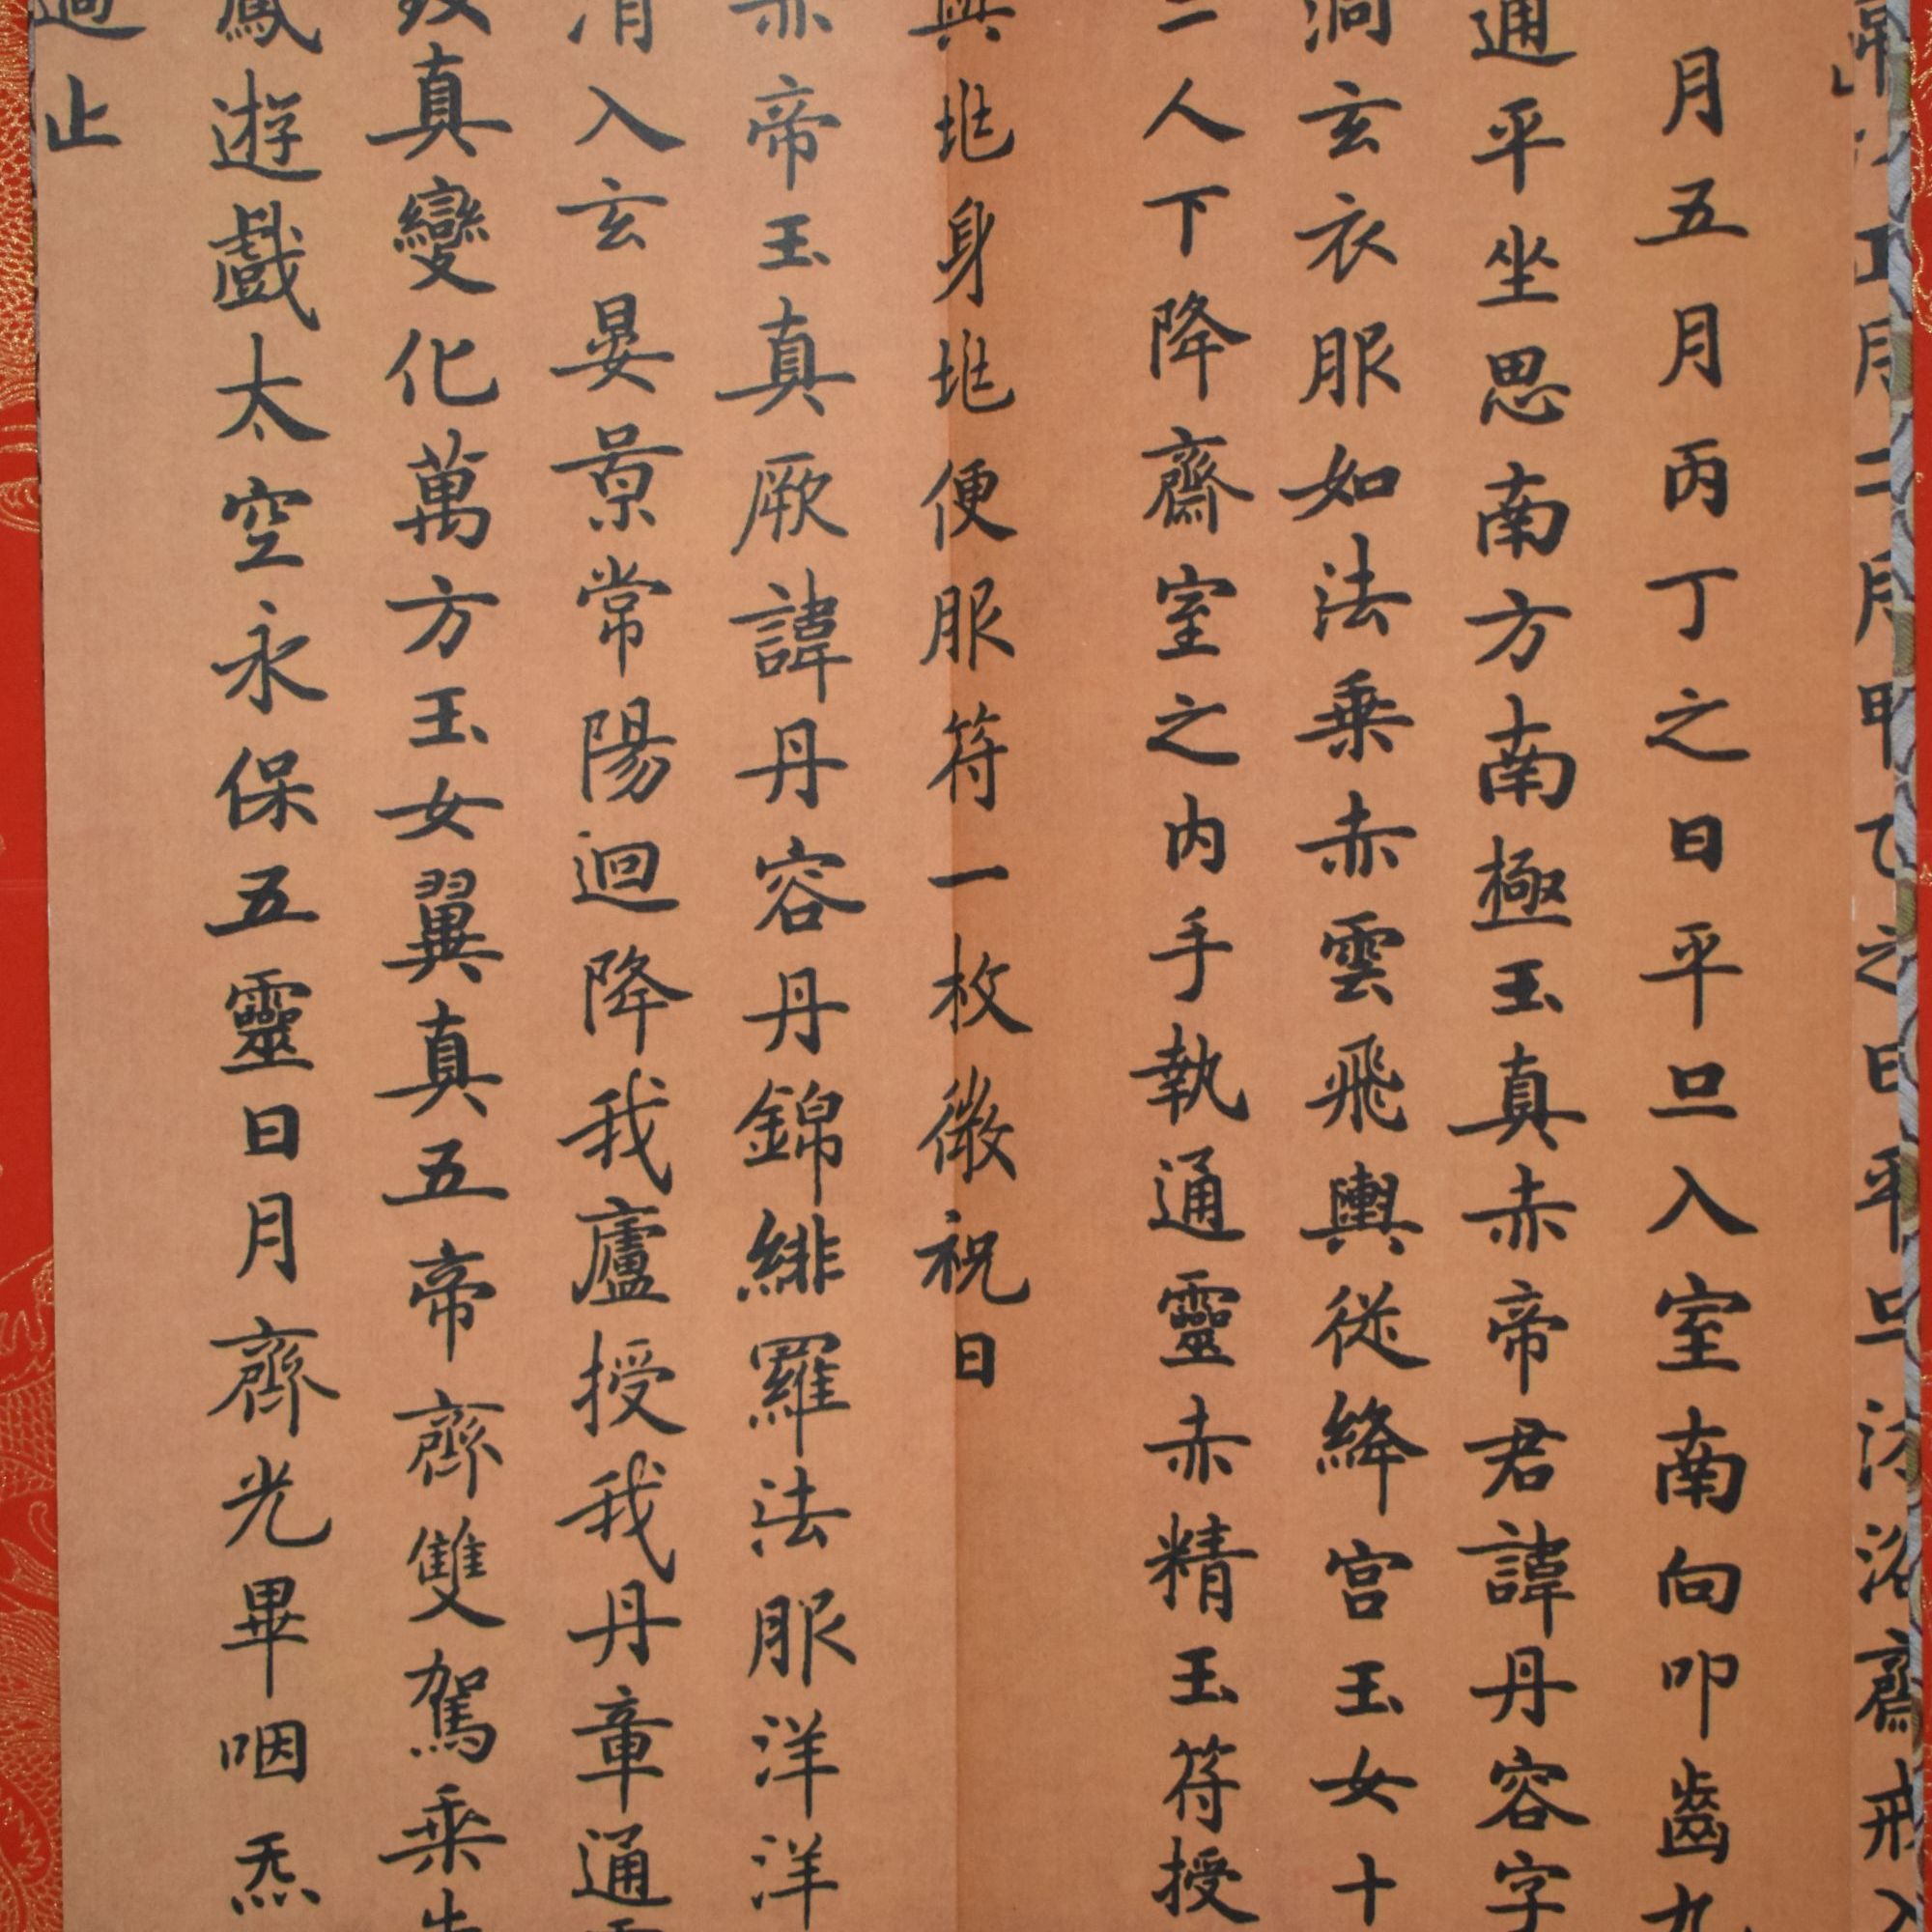 正月二月甲乙之日平旦沐浴齋戒入
月五月丙丁之日平旦入室南向叩齒九
通平坐思南方南極玉真赤帝君諱丹容字
洞玄衣服如法乗赤雲飛輿從絳宫玉女十
二人下降齋室之内手執通靈赤精玉符授
與兆身兆便服符一枚微祝曰
赤帝玉真厥諱丹容丹錦緋羅法服洋洋
入玄晏景常陽迴降我廬授我丹章通靈
真變化萬方玉女翼真五帝齊雙駕乗
鳳遊戲太空永保五靈日月齊光畢咽炁
過止